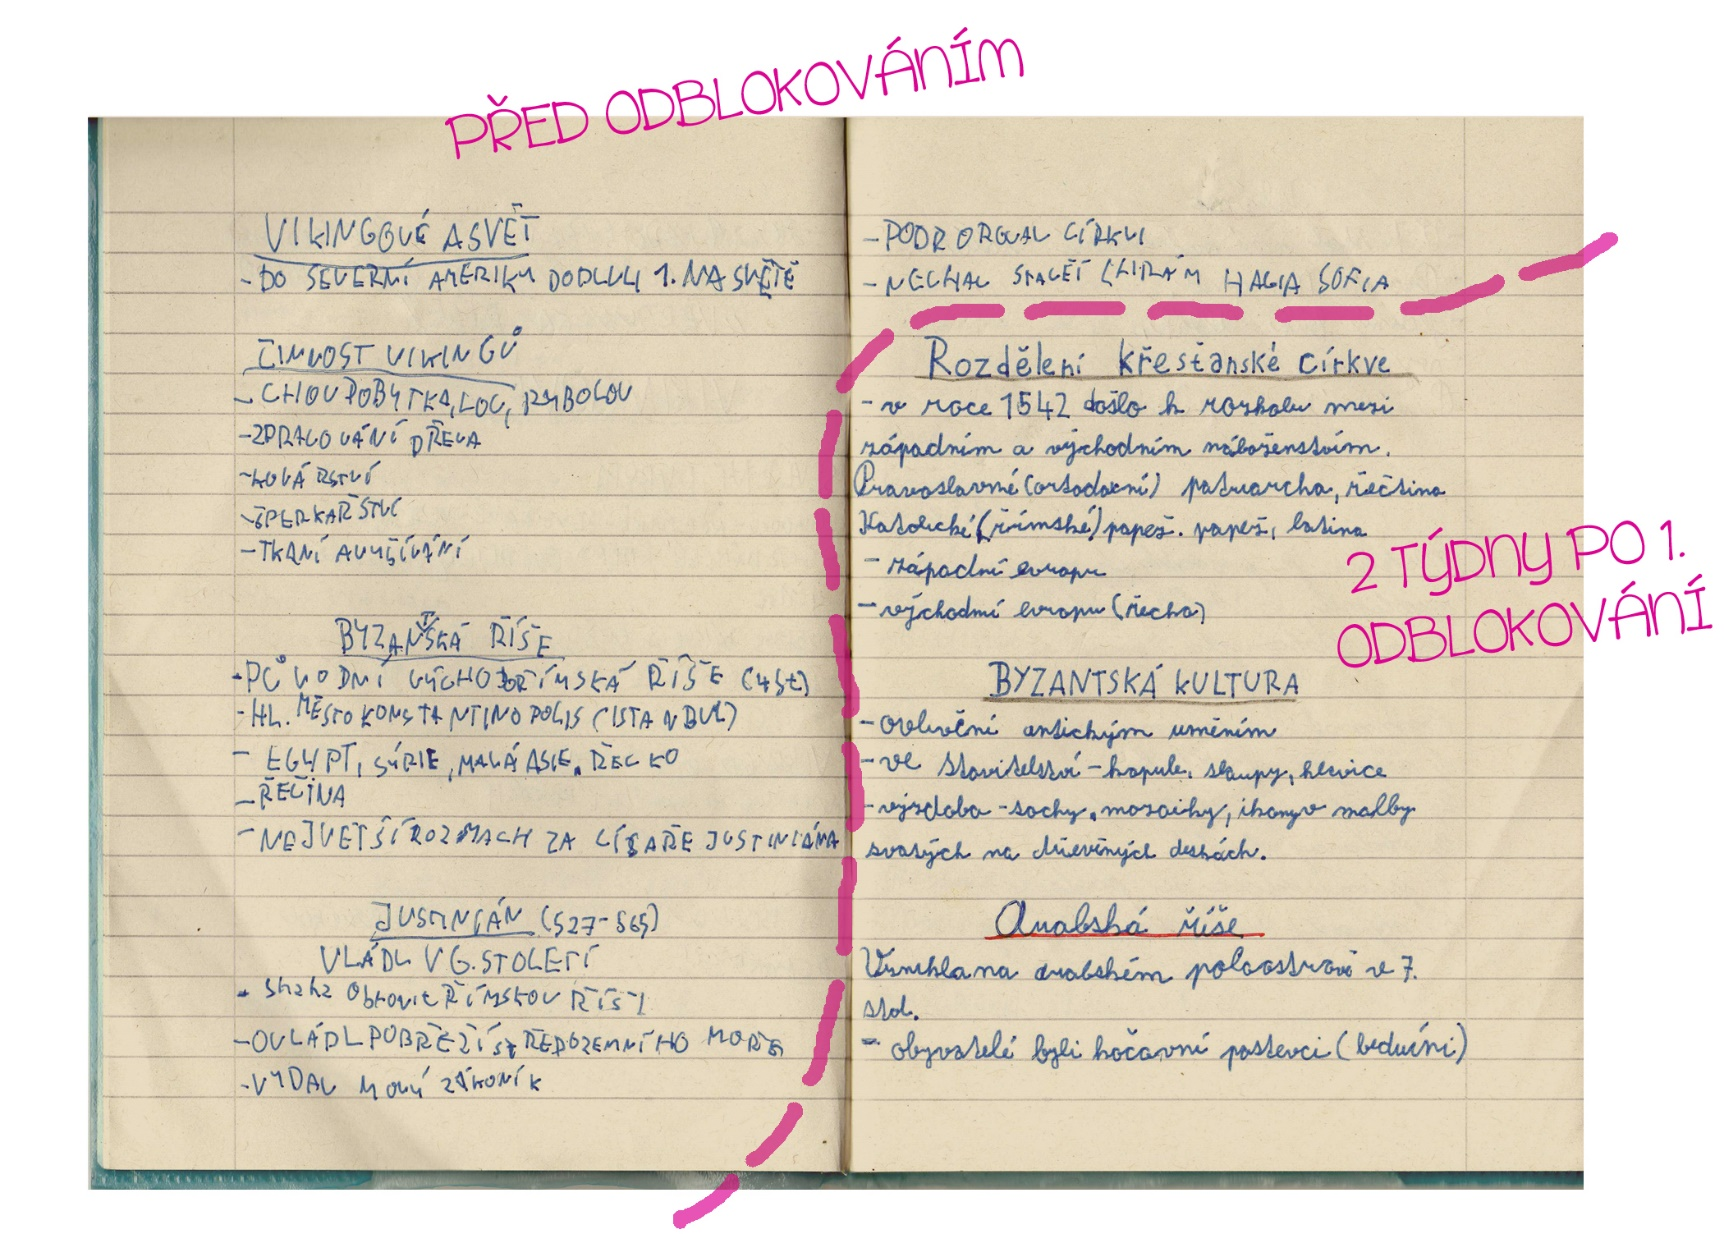 PŘED ODBLOKOVÁNÍM
VIKINGOVÉ A SVĚT
- DO SEVERNÍ AMERIKY DOPLULI 1. NA SVĚTĚ
ČINNOST VIKINGŮ
- CHOV DOBYTKA, LOV, RYBOLOV
- ZPRACOVÁNÍ DŘEVA
- KOVÁŘSTVÍ
- ŠPERKAŘSTVÍ
- TKANÍ A VYŠÍVÁNÍ
BYZANTSKÁ ŘÍŠE
- PŮVODNÍ VÝCHODOŘÍMSKÁ ŘÍŠE (4 st)
- HL. MĚSTO KONSTANTINOPOLIS (ISTANBUL)
- EGYPT, SÝRIE, MALÁ ASIE, ŘECKO
- ŘEČTINA
- NEJVĚTŠÍ ROZMACH ZA CÍSAŘE JUSTINIÁNA
JUSTINIÁN (527-565)
VLÁDL V 6. STOLETÍ
- snaha obnovit ŘÍMSKOU ŘÍŠI
- OVLÁDL POBŘEŽÍ STŘEDOZEMNÍHO MOŘE
- VYDAL NOVÝ ZÁKONÍK
- PODPOROVAL CÍRKVI
- NECHAL STAVĚT CHRÁM HAGIA SOFIA
Rozdělení křesťanské církve
- v roce 1542 došlo k rozkolu mezi
západním a východním náboženstvím.
Pravoslavné (ortodoxní) patriarcha, řečtina
Katolické (římské) papež. papež, latina
- západní evropu
- východní evropu (řecko)
2 TÝDNY PO 1.
ODBLOKOVÁNÍ
BYZANTSKÁ KULTURA
- ovlivnění antickým uměním
- ve stavitelství - kopule, sloupy, hlavice
- výzdoba - sochy, mozaiky, ikony v malby
svatých na dřevěných deskách.
Arabská říše
Vznikla na arabském poloostrově v 7.
stol.
- obyvatelé byli kočovní pastevci (beduíni)